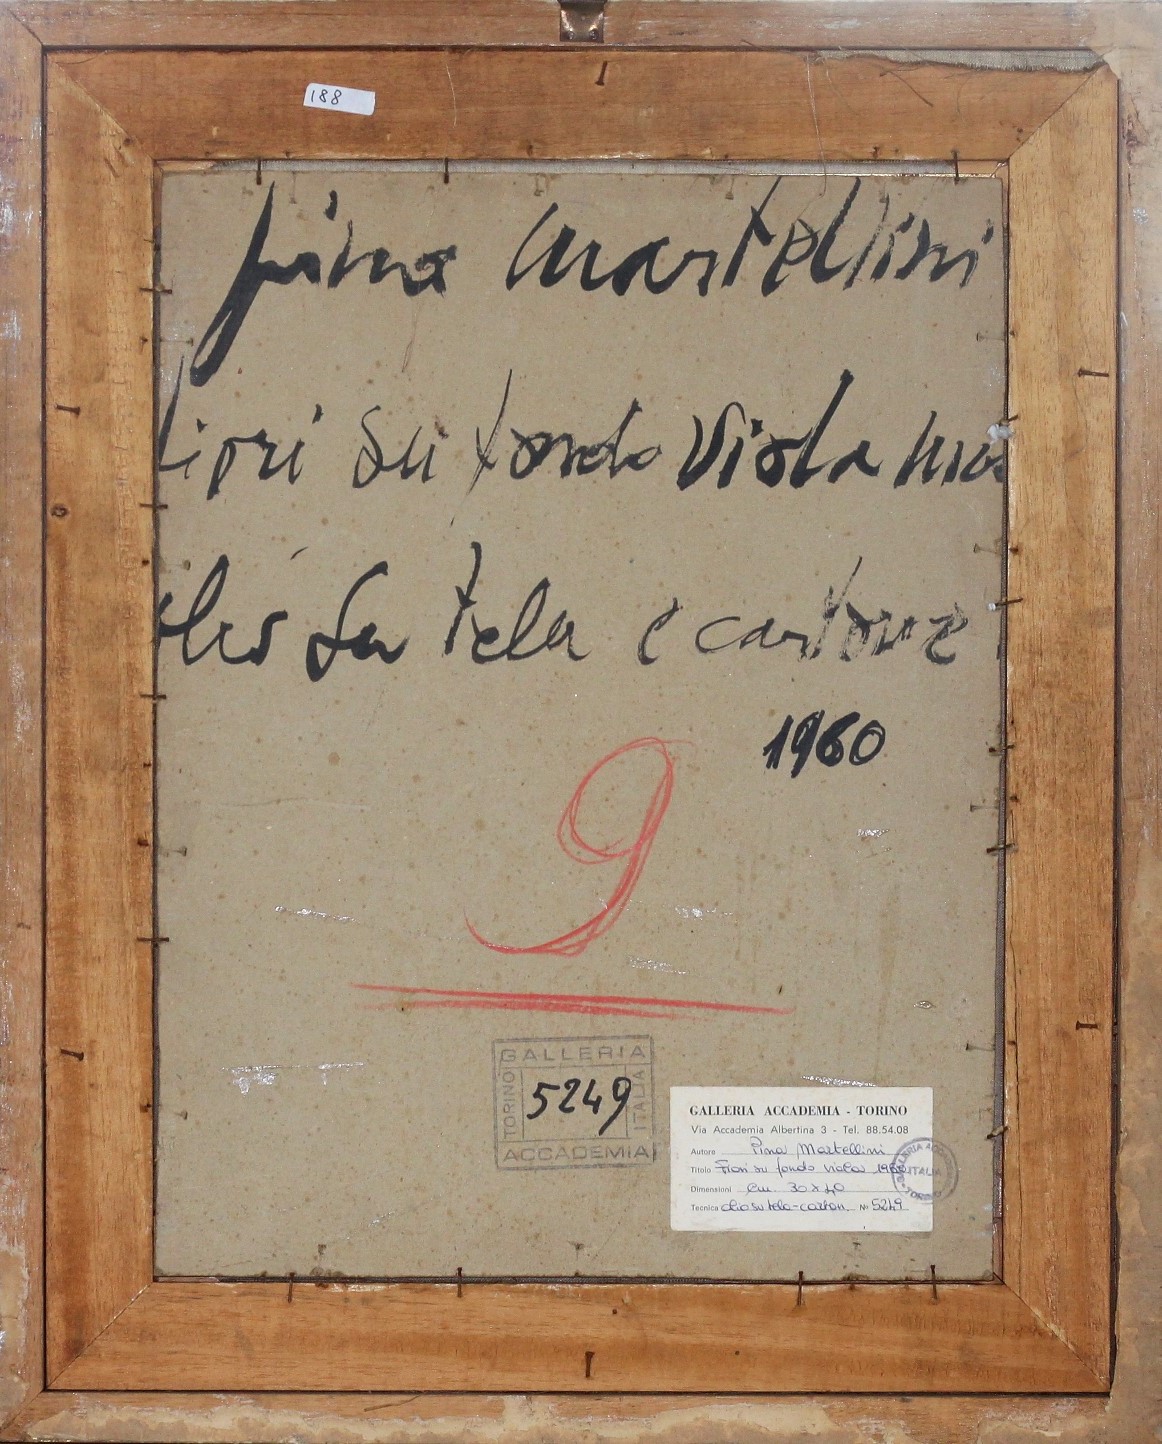 188
pina Martellini
fiori su fondo viola
olio su tela e cartone
1960
9
GALLERIA
TORINO
5249
ITALIA
ACCADEMIA
GALLERIA ACCADEMIA - TORINO
Via Accademia Albertina 3 - Tel. 88.54.08
Autore Pina Martellini
Titolo Fiori su fondo viola 1960
Dimensioni cm. 30 x 40
Tecnica olio su tela-carton. N° 5249
GALLERIA ACCADEMIA
ITALIA
TORINO